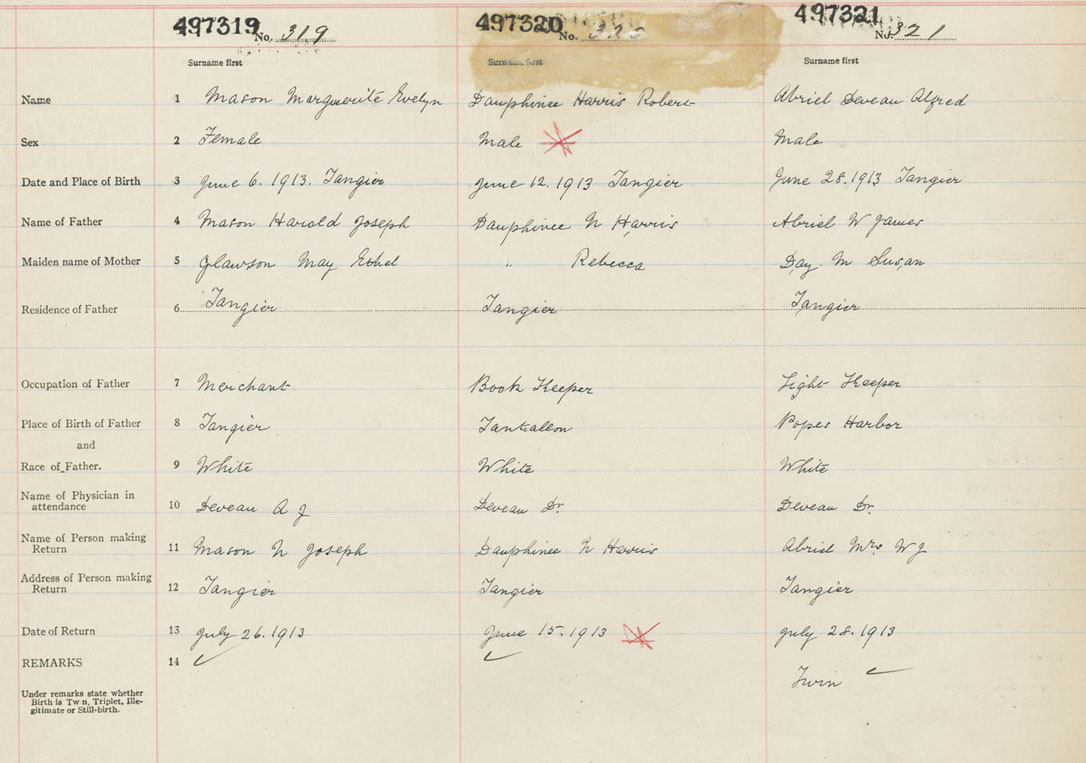 497319 No. 319 497320 No. 320 497321 No. 321
Surname first Surname first Surname first
Name 1 Mason Marguerite Evelyn Dauphinee Harris Robert Abriel Deveau Alfred
Sex 2 Female Male Male
Date and Place of Birth 3 June 6. 1913. Tangier June 12. 1913 Tangier June 28. 1913 Tangier
Name of Father 4 Mason Harold Joseph Dauphinee N Harris Abriel W James
Maiden name of Mother 5 Glawson May Ethel " Rebecca Day M Susan
Residence of Father 6 Tangier Tangier Tangier
Occupation of Father 7 Merchant Book Keeper Light Keeper
Place of Birth of Father 8 Tangier Tantallon Popes Harbor
and
Race of Father. 9 White White White
Name of Physician in
attendance 10 Deveau A J Deveau Dr. Deveau Dr.
Name of Person making
Return 11 Mason H Joseph Dauphinee N Harris Abriel Mrs. W J
Address of Person making
Return 12 Tangier Tangier Tangier
Date of Return 13 July 26. 1913 June 15. 1913 July 28. 1913
REMARKS 14 ✓ ✓
Twin ✓
Under remarks state whether
Birth is Tw n, Triplet, Ille-
gitimate or Still-birth.